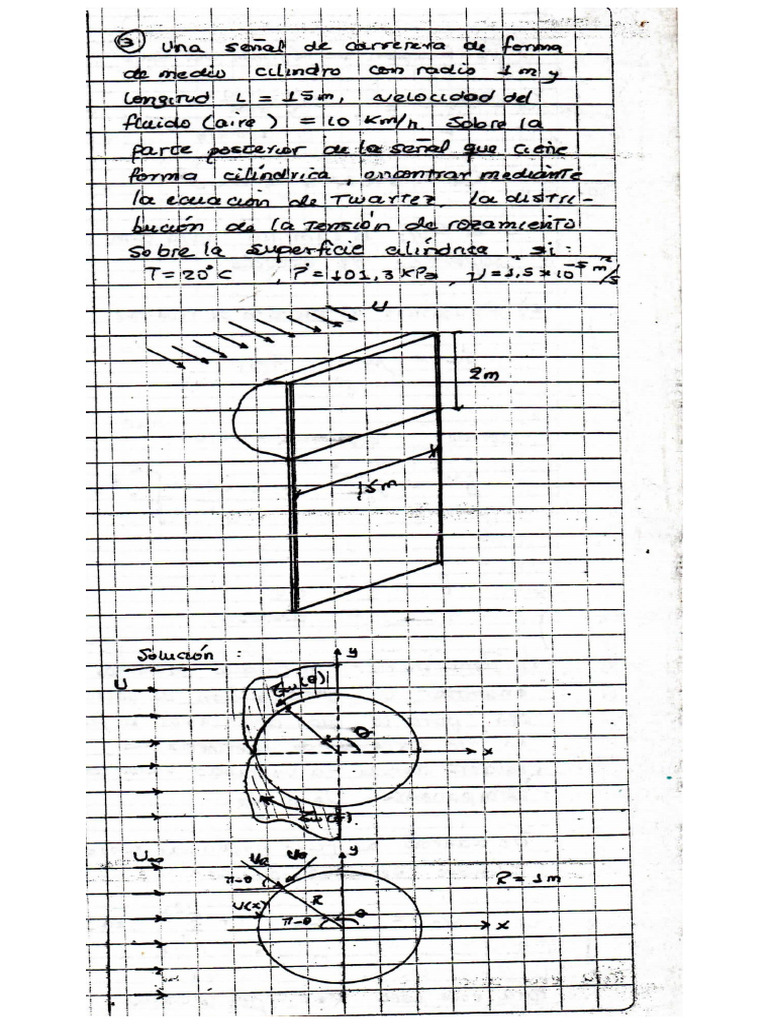 ③ Una señal de carretera de forma
de medio cilindro con radio 1m y
longitud L = 15m, velocidad del
fluido (aire) = 10 Km/h. Sobre la
parte posterior de la señal que tiene
forma cilíndrica, encontrar mediante
la ecuación de Twartez. La distri-
bución de la Tensión de rozamiento
sobre la superficie cilíndrica, si:
T = 20°C , P = 101,3 KPa, ν = 1,5 * 10⁻⁵ m²/s
U
2m
15m
Solución :
y
U
θ
x
U∞
y
Uθ
π-θ
R = 1m
U(x)
R
θ
π-θ
x